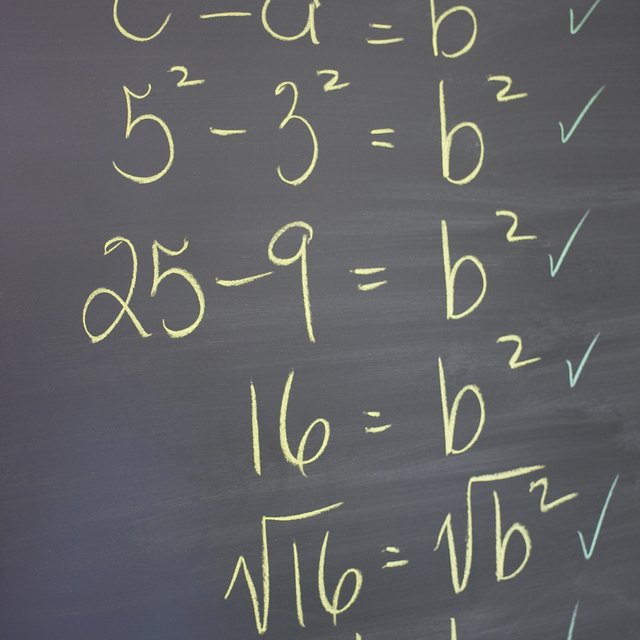 c - a = b ✓
5² - 3² = b² ✓
25 - 9 = b² ✓
16 = b² ✓
√16 = √b² ✓